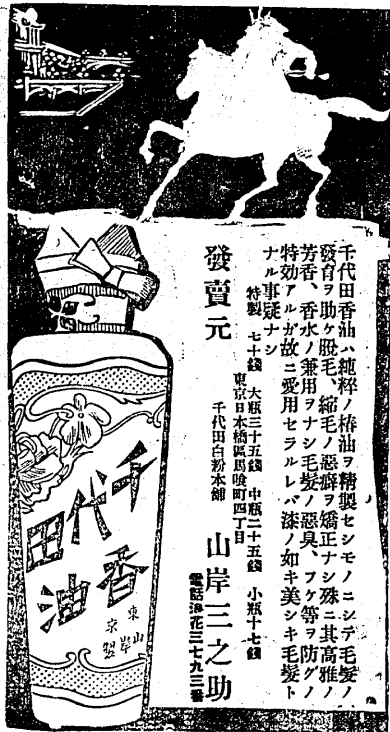 千代田香油ハ純粹ノ椿油ヲ精製セシモノニシテ毛髮ノ
發育ヲ助ケ脫毛、縮毛ノ惡癖ヲ矯正ナシ殊ニ其高雅ノ
芳香、香水ノ兼用ヲナシ毛髮ノ惡臭、フケ等ヲ防グノ
特効アルガ故ニ愛用セラルレバ漆ノ如キ美シキ毛髮ト
ナル事疑ナシ
特製 七十錢 大瓶三十五錢 中瓶二十五錢 小瓶十七錢
東京日本橋區馬喰町四丁目
千代田白粉本舖
發賣元 山岸三之助
電話浪花三七九三番
千代田
香油
東京
山岸製